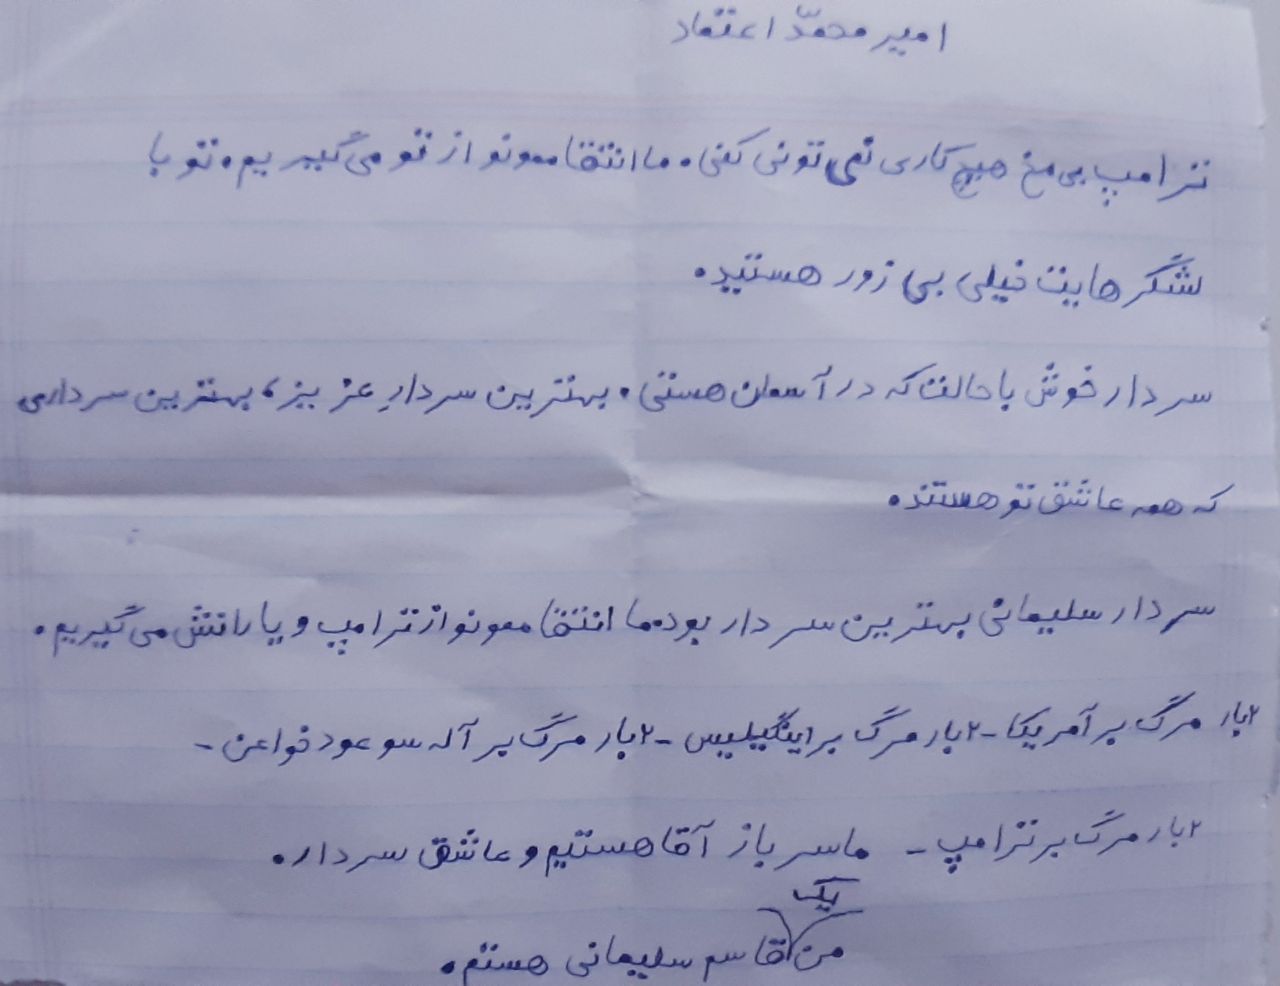 امیر محمّد اعتماد
ترامپ بی مخ هیچ کاری نمی تونی کنی. ما انتقاممونو از تو می گیریم. تو با
لشگرهایت خیلی بی زور هستید.
سردار خوش با حالت که در آسمان هستی. بهترین سردارِ عزیز، بهترین سرداری
که همه عاشق تو هستند.
سردار سلیمانی بهترین سردار بود. ما انتقاممونو از ترامپ و یارانش می گیریم.
۲بار مرگ بر آمریکا - ۲بار مرگ بر اینگیلیس - ۲بار مرگ بر آله سوعود خواعن -
۲بار مرگ بر ترامپ - ما سرباز آقا هستیم و عاشق سردار.
یک
من قاسم سلیمانی هستم.